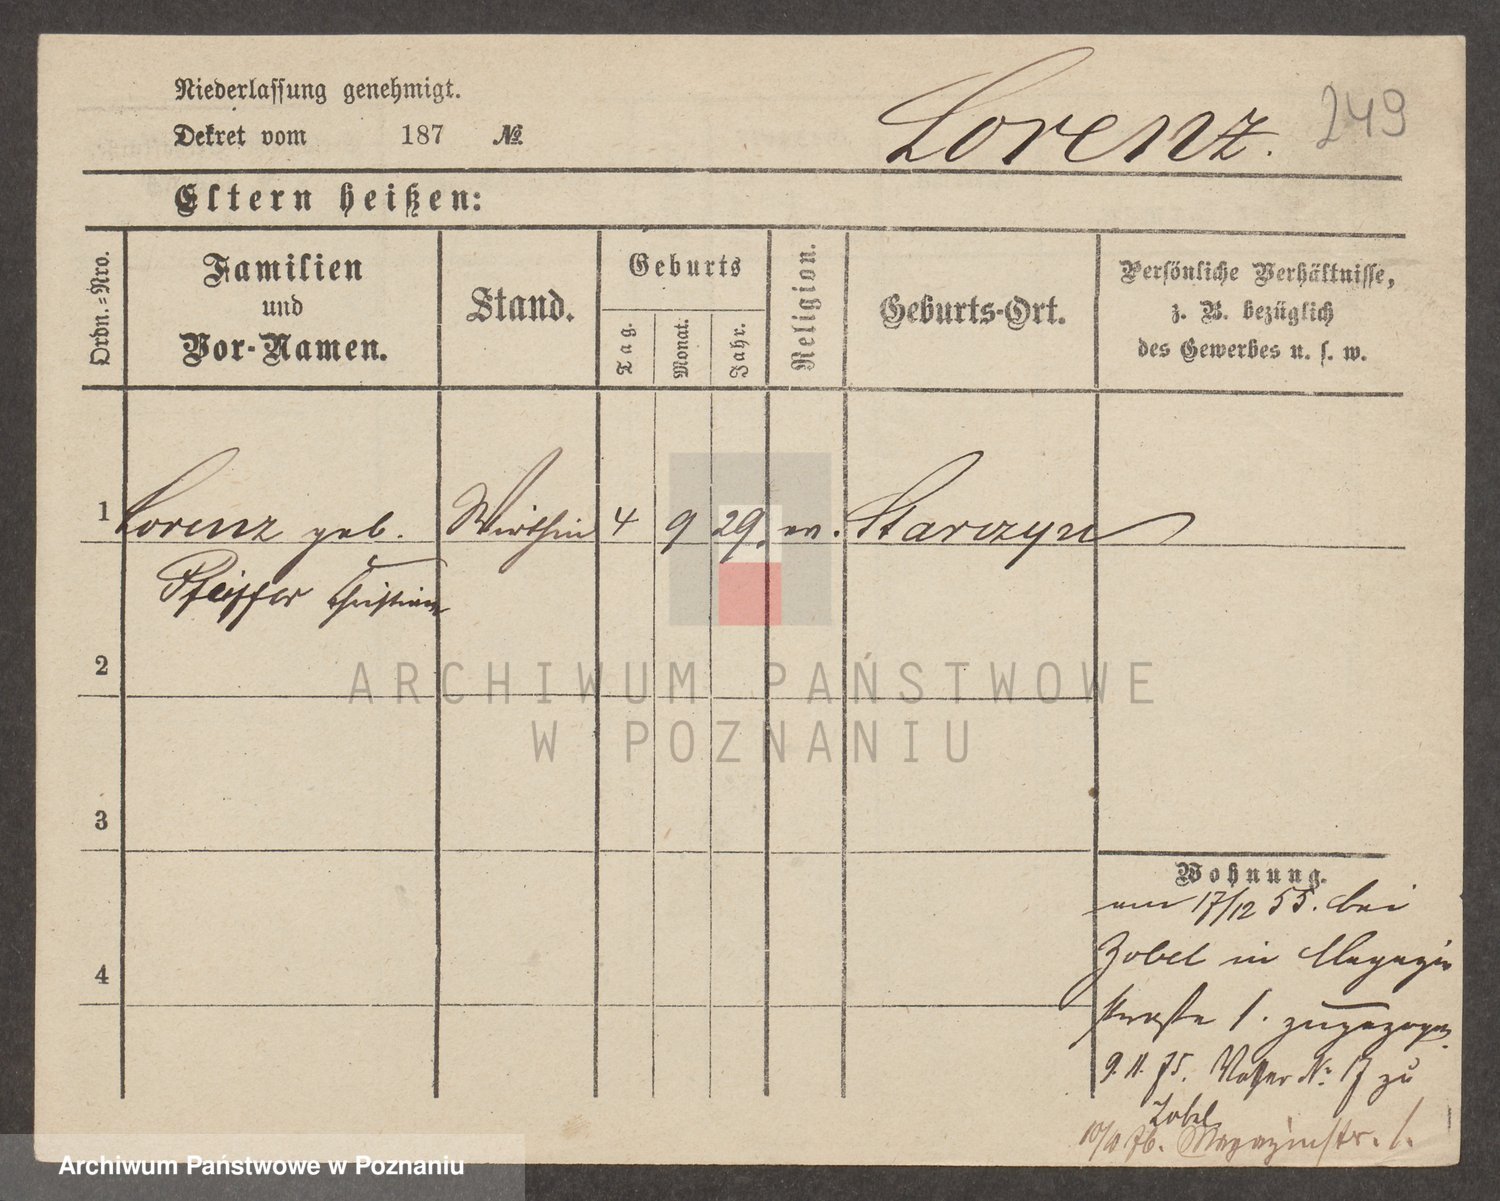 Niederlassung genehmigt.
Dekret vom 187 №
Lorenz.
249
Eltern heißen:
Ordn.-Nro.
Familien
und
Vor-Namen.
Stand.
Geburts
Tag.
Monat.
Jahr.
Religion.
Geburts-Ort.
Persönliche Verhältnisse,
z. B. bezüglich
des Gewerbes u. s. w.
1 Lorenz geb. Wirthin 4 9 29. ev. Starczyn
Pfeiffer Christine
2
ARCHIWUM PAŃSTWOWE
W POZNANIU
3
4
Wohnung.
am 17/12 55. bei
Zobel in Magazin
straße 1. zugezogen.
9. 11. 75. Wasser № 17 zu
Zobel
10/4 76. Magazinstr. 1.
Archiwum Państwowe w Poznaniu